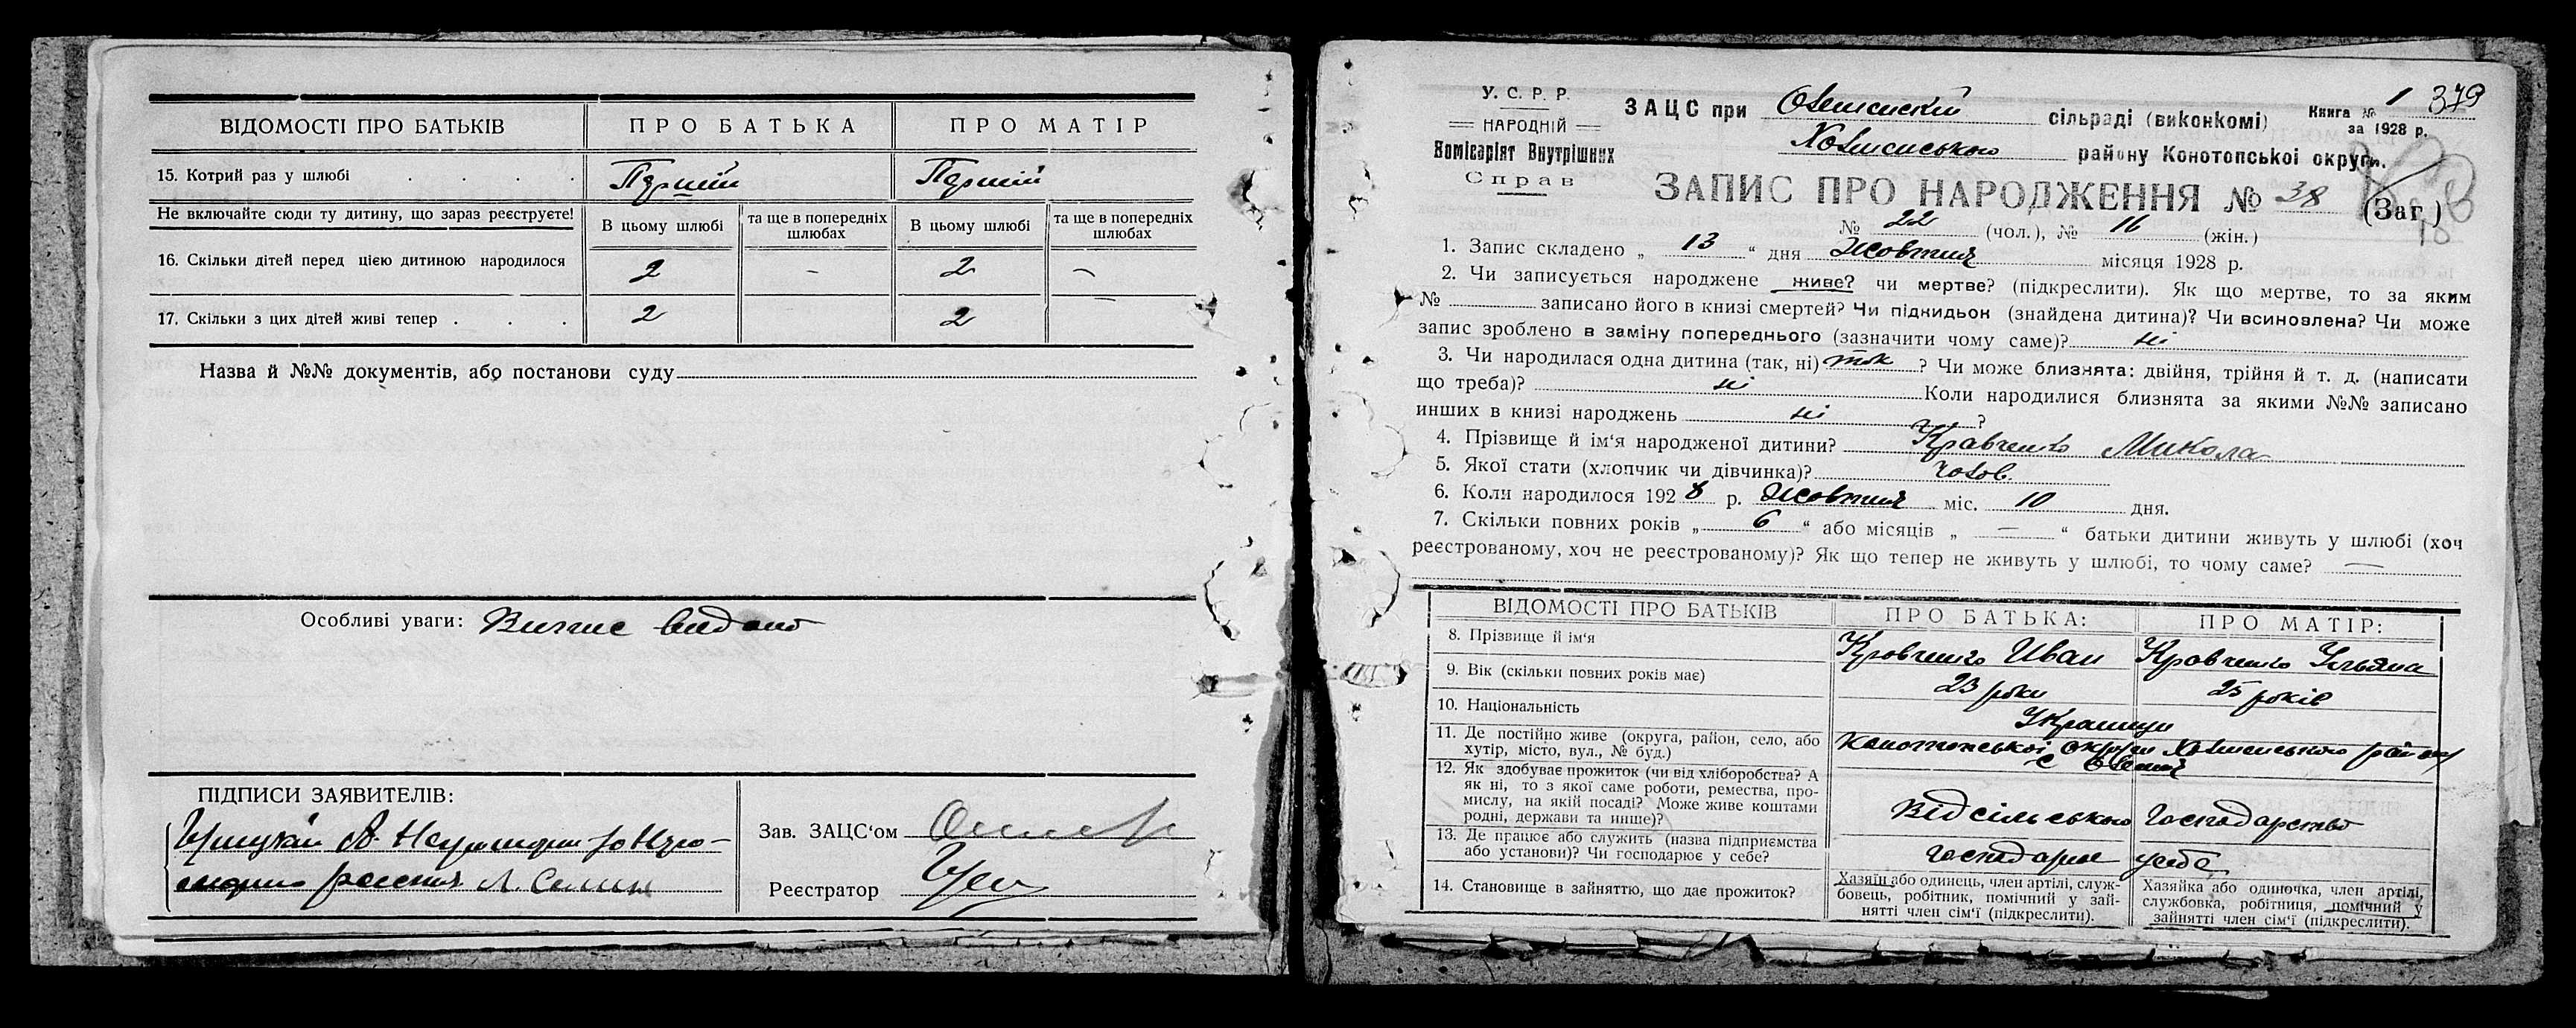 ВІДОМОСТІ ПРО БАТЬКІВ ПРО БАТЬКА ПРО МАТІР
15. Котрий раз у шлюбі . . . . Перший Перший
Не включайте сюди ту дитину, що зараз реєструєте! В цьому шлюбі та ще в попередніх шлюбах В цьому шлюбі та ще в попередніх шлюбах
16. Скільки дітей перед цією дитиною народилося 2 – 2 –
17. Скільки з цих дітей живі тепер . . . 2 2
Назва й №№ документів, або постанови суду
Особливі уваги: Випис видано
ПІДПИСИ ЗАЯВИТЕЛІВ:
Зав. ЗАЦС'ом
Реєстратор
У. С. Р. Р.
НАРОДНІЙ
Комісаріят Внутрішних
Справ
ЗАЦС при сільраді (виконкомі) Книга № 1 379
за 1928 р.
Холменського району Конотопської округи.
ЗАПИС ПРО НАРОДЖЕННЯ № 38 (Заг.)
№ 22 (чол.), № 16 (жін.)
1. Запис складено „ 13 “ дня Жовтня місяця 1928 р.
2. Чи записується народжене живе? чи мертве? (підкреслити). Як що мертве, то за яким
№ записано його в книзі смертей? Чи підкидьок (знайдена дитина)? Чи всиновлена? Чи може
запис зроблено в заміну попереднього (зазначити чому саме)? ні
3. Чи народилася одна дитина (так, ні) так ? Чи може близнята: двійня, трійня й т. д. (написати
що треба)? ні Коли народилися близнята за якими №№ записано
инших в книзі народжень ні ?
4. Прізвище й ім'я народженої дитини? Кравченко Микола
5. Якої стати (хлопчик чи дівчинка)? чолов.
6. Коли народилося 1928 р. Жовтня міс. 10 дня.
7. Скільки повних років „ 6 “ або місяців „ — “ батьки дитини живуть у шлюбі (хоч
реєстрованому, хоч не реєстрованому)? Як що тепер не живуть у шлюбі, то чому саме? —
ВІДОМОСТІ ПРО БАТЬКІВ ПРО БАТЬКА: ПРО МАТІР:
8. Прізвище й ім'я Кравченко Иван Кравченко Ульяна
9. Вік (скільки повних років має) 23 роки 25 років
10. Національність Українци
11. Де постійно живе (округа, район, село, або
хутір, місто, вул., № буд.) Конотопської округи Холменського району
12. Як здобуває прожиток (чи від хліборобства? А
як ні, то з якої саме роботи, ремества, про-
мислу, на якій посаді? Може живе коштами
родні, держави та инше)? Від сільського господарство
13. Де працює або служить (назва підприємства
або установи)? Чи господарює у себе? господарює у себе
14. Становище в зайняттю, що дає прожиток?
Хазяїн або одинець, член артілі, служ-
бовець, робітник, помічний у зай-
нятті член сім'ї (підкреслити).
Хазяйка або одиночка, член артілі,
службовка, робітниця, помічний у
зайнятті член сім'ї (підкреслити).